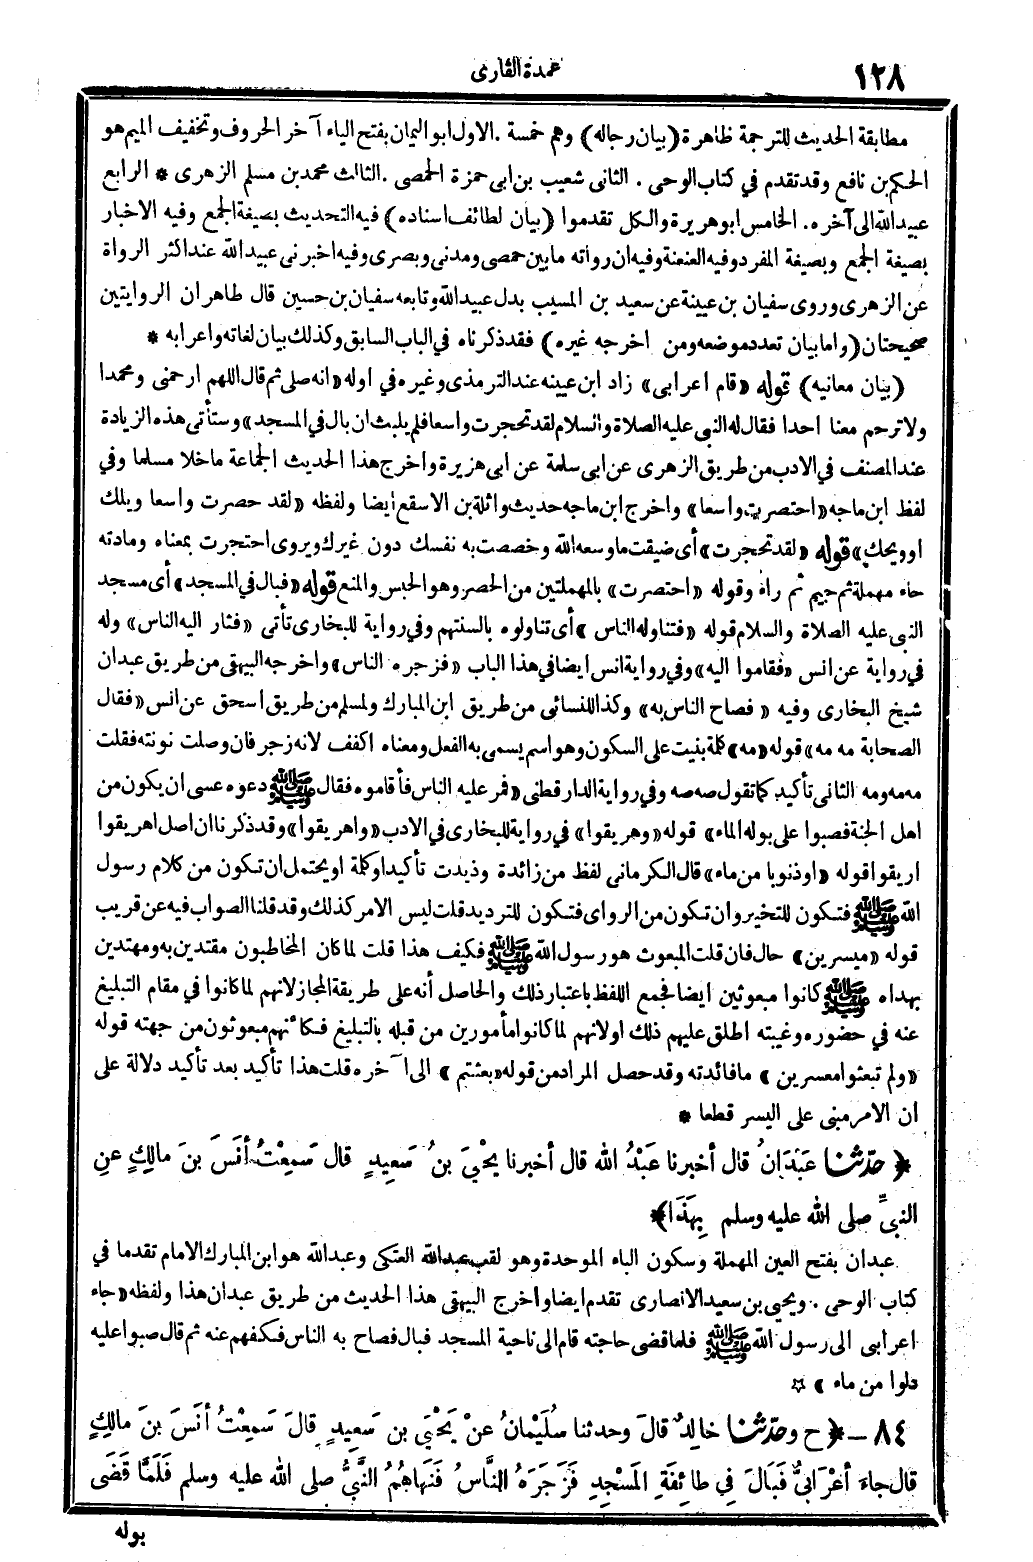 ١٢٨
عمدة القارى
مطابقة الحديث للترجمة ظاهرة (بيان رجاله) وهم خمسة. الاول ابو اليمان بفتح الياء آخر الحروف وتخفيف الميم هو
الحكم بن نافع وقد تقدم في كتاب الوحى. الثانى شعيب بن ابى حمزة الحمصى. الثالث محمد بن مسلم الزهرى * الرابع
عبيد الله الى آخره. الخامس ابو هريرة والكل تقدموا (بيان لطائف اسناده) فيه التحديث بصيغة الجمع وفيه الاخبار
بصيغة الجمع وبصيغة المفرد وفيه العنعنة وفيه ان رواته ما بين حمصى ومدنى وبصرى وفيه اخبرنى عبيد الله عند اكثر الرواة
عن الزهرى وروى سفيان بن عيينة عن سعيد بن المسيب بدل عبيد الله وتابعه سفيان بن حسين قال طاهران الروايتين
صحيحتان (واما بيان تعدد موضعه ومن اخرجه غيره) فقد ذكرناه في الباب السابق وكذلك بيان لغاته واعرابه *
(بيان معانيه) قوله «قام اعرابى» زاد ابن عيينه عند الترمذى وغيره في اوله «انه صلى ثم قال اللهم ارحمنى ومحمدا
ولا ترحم معنا احدا فقال له النبى عليه الصلاة والسلام لقد تحجرت واسعا فلم يلبث ان بال في المسجد» وستأتى هذه الزيادة
عند المصنف في الادب من طريق الزهرى عن ابى سلمة عن ابى هريرة واخرج هذا الحديث الجماعة ما خلا مسلما وفي
لفظ ابن ماجه «احتصرت واسعا» واخرج ابن ماجه حديث واثلة بن الاسقع أيضا ولفظه «لقد حصرت واسعا ويلك
او ويحك» قوله «لقد تحجرت» أى ضيقت ما وسعه الله وخصصت به نفسك دون غيرك ويروى احتجرت بمعناه ومادته
حاء مهملة ثم جيم ثم راء وقوله «احتصرت» بالمهملتين من الحصر وهو الحبس والمنع قوله «فبال في المسجد» أى مسجد
النبى عليه الصلاة والسلام قوله «فتناوله الناس» أى تناولوه بالسنتهم وفي رواية للبخارى تأتى «فثار اليه الناس» وله
في رواية عن انس «فقاموا اليه» وفي رواية انس ايضا في هذا الباب «فزجره الناس» واخرجه البيهقى من طريق عبدان
شيخ البخارى وفيه «فصاح الناس به» وكذا للنسائى من طريق ابن المبارك ولمسلم من طريق اسحق عن انس «فقال
الصحابة مه مه» قوله «مه» كلمة بنيت على السكون وهو اسم يسمى به الفعل ومعناه اكفف لانه زجر فان وصلت نونته فقلت
مه مه ومه الثانى تأكيد كما تقول صه صه وفي رواية الدارقطنى «فمر عليه الناس فأقاموه فقال ﷺ دعوه عسى ان يكون من
اهل الجنة فصبوا على بوله الماء» قوله «وهريقوا» في رواية للبخارى في الادب «واهريقوا» وقد ذكرنا ان اصل اهريقوا
اريقوا قوله «او ذنوبا من ماء» قال الكرمانى لفظ من زائدة وزيدت تأكيدا وكلمة او يحتمل ان تكون من كلام رسول
الله ﷺ فتكون للتخيير وان تكون من الراوى فتكون للترديد قلت ليس الامر كذلك وقد قلنا الصواب فيه عن قريب
قوله «ميسرين» حال فان قلت المبعوث هو رسول الله ﷺ فكيف هذا قلت لما كان المخاطبون مقتدين به ومهتدين
بهداه ﷺ كانوا مبعوثين ايضا فجمع اللفظ باعتبار ذلك والحاصل أنه على طريقة المجاز لانهم لما كانوا في مقام التبليغ
عنه في حضوره وغيبته اطلق عليهم ذلك او لانهم لما كانوا مأمورين من قبله بالتبليغ فكأنهم مبعوثون من جهته قوله
«ولم تبعثوا معسرين» ما فائدته وقد حصل المراد من قوله «بعثتم» الى آخره قلت هذا تأكيد بعد تأكيد دلالة على
ان الامر مبنى على اليسر قطعا *
﴿ حدّثنا عَبْدَانُ قال أخبرنا عَبْدُ الله قال أخبرنا يحْيَى بنُ سَعِيدٍ قال سَمِعْتُ أنَسَ بنَ مالِكٍ عنِ
النبىِّ صلى الله عليه وسلم بِهَذَا ﴾
عبدان بفتح العين المهملة وسكون الباء الموحدة وهو لقب عبد الله العتكى وعبد الله هو ابن المبارك الامام تقدما في
كتاب الوحى. ويحيى بن سعيد الانصارى تقدم ايضا واخرج البيهقى هذا الحديث من طريق عبدان هذا ولفظه «جاء
اعرابى الى رسول الله ﷺ فلما قضى حاجته قام الى ناحية المسجد فبال فصاح به الناس فكفهم عنه ثم قال صبوا عليه
دلوا من ماء» ☆
٨٤ – ﴿ ح وحَدّثنا خالِدٌ قالَ وحدثنا سُلَيْمانُ عنْ يَحْيَى بنِ سَعِيدٍ قالَ سَمِعْتُ أنَسَ بنَ مالِكٍ
قال جاءَ أعْرَابىٌّ فَبَالَ فِي طائِفَةِ المَسْجِدِ فَزَجَرَهُ النَّاسُ فَنَهاهُمُ النَّبىُّ صلى الله عليه وسلم فَلَمَّا قَضَى
بوله